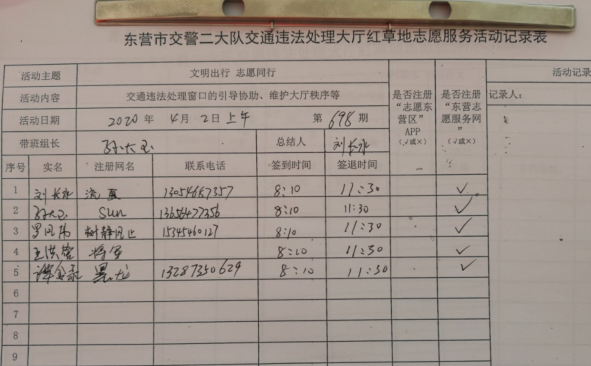 东营市交警二大队交通违法处理大厅红草地志愿服务活动记录表
活动主题 文明出行 志愿同行 活动记录
活动内容 交通违法处理窗口的引导协助、维护大厅秩序等 是否注册“志愿东营区”APP（√或×） 是否注册“东营志愿服务网”（√或×） 记录人：
活动日期 2020 年 4 月 2 日 上午 第 698 期
带班组长 孙大玉 总结人 刘长永
序号 实名 注册网名 联系电话 签到时间 签退时间
1 刘长永 流星 13054667357 8:10 11:30 ✓
2 孙大玉 Sun 13656477356 8:10 11:30 ✓
3 罗风伟 树静风止 15345460127 8:10 11:30 ✓
4 将军 8:10 11:30 ✓
5 黑龙 13287350629 8:10 11:30 ✓
6
7
8
9